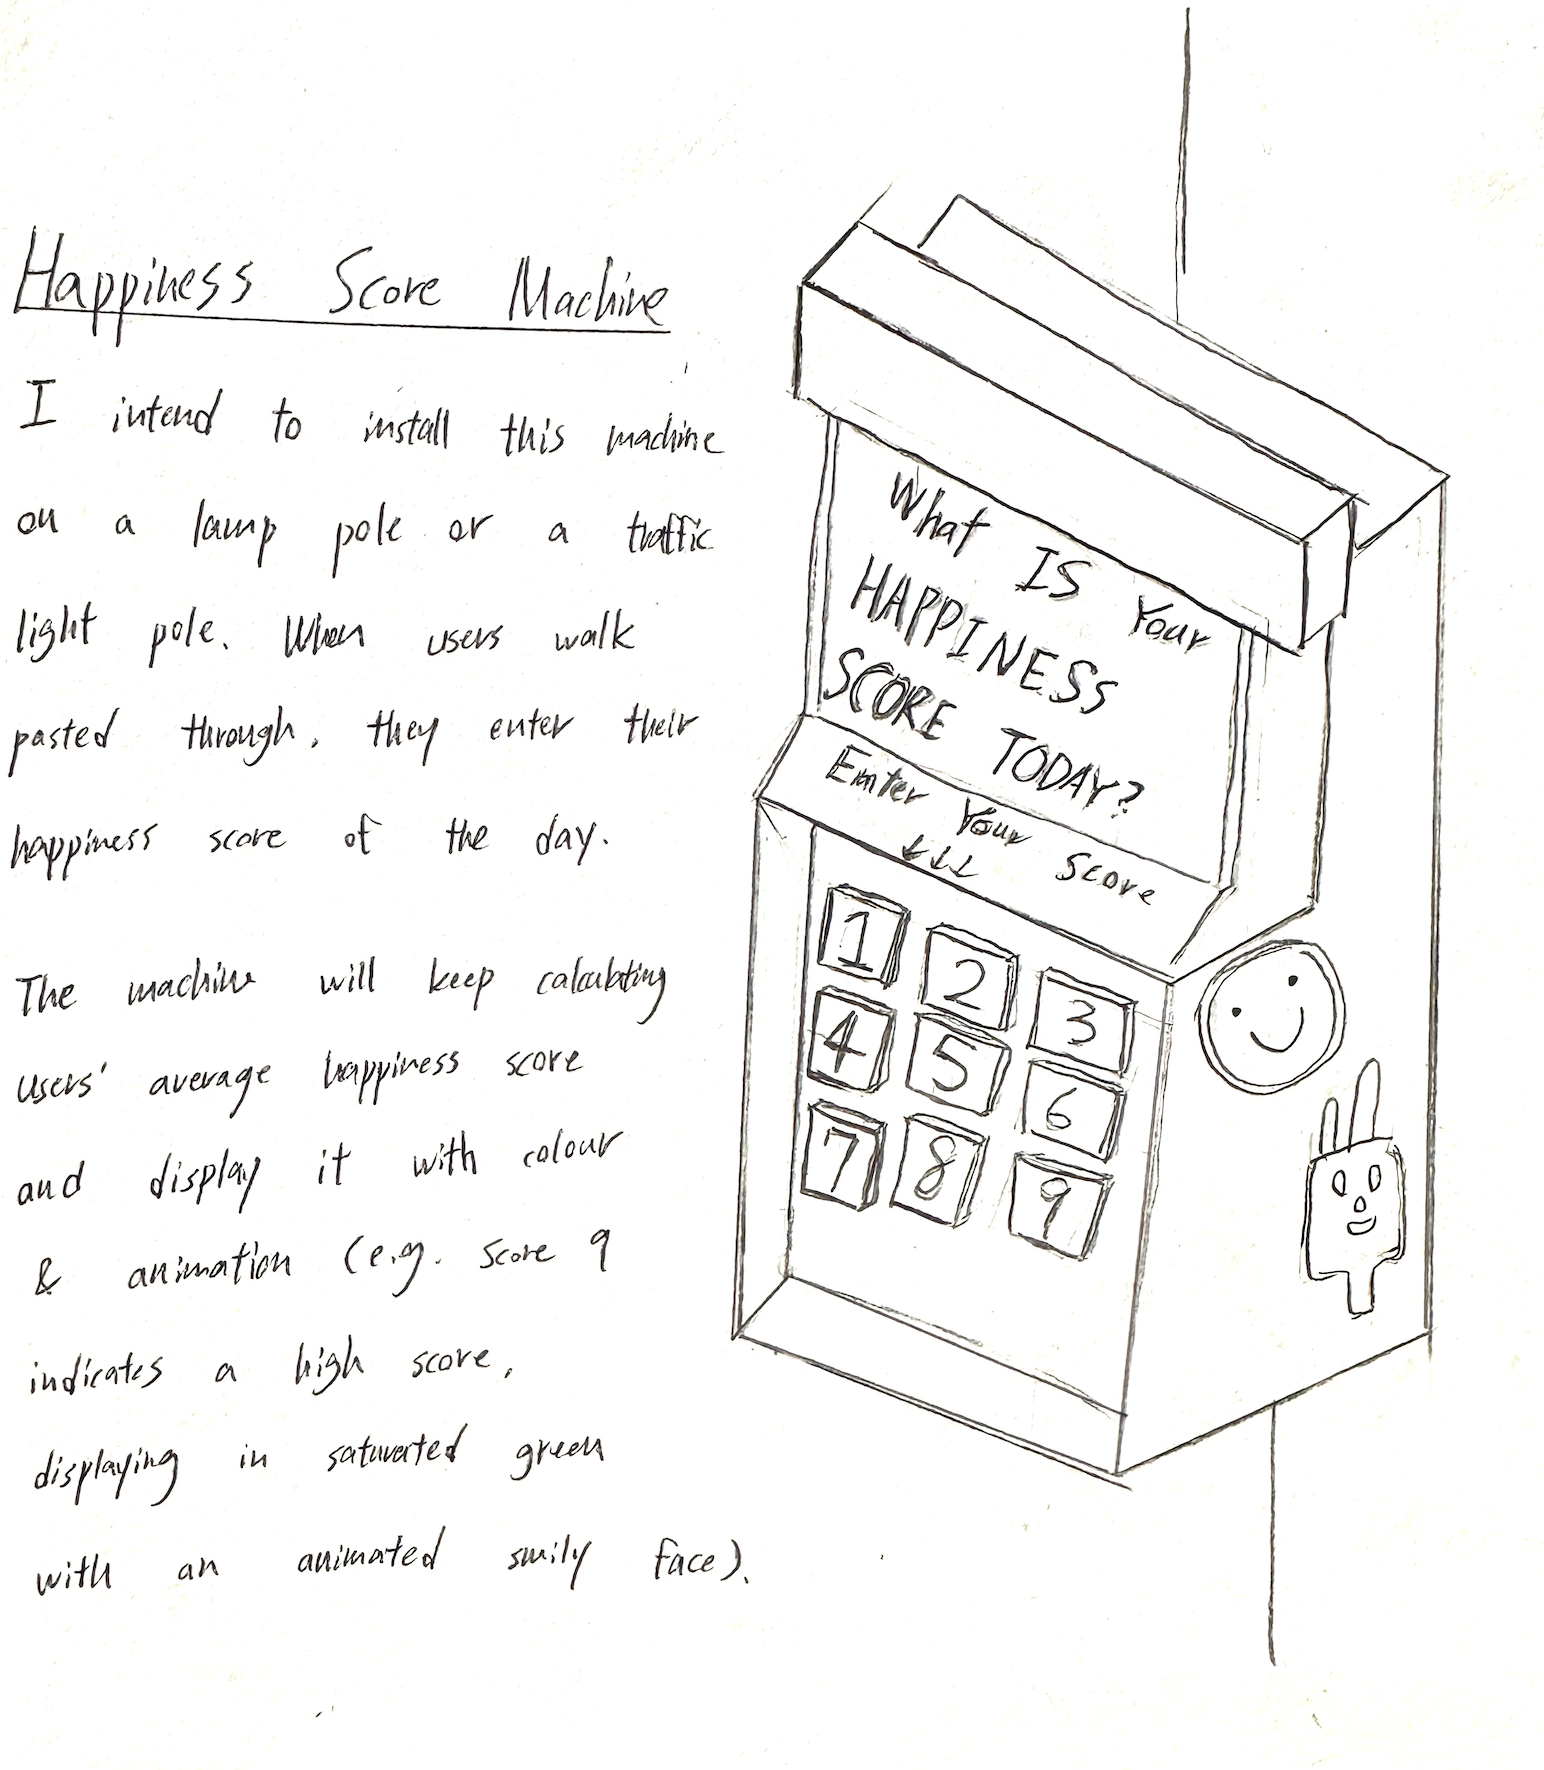 Happiness Score Machine
I intend to install this machine
on a lamp pole or a traffic
light pole. When users walk
pasted through, they enter their
happiness score of the day.
The machine will keep calculating
users' average happiness score
and display it with colour
& animation (e.g. score 9
indicates a high score,
displaying in saturated green
with an animated smily face).
What IS Your
HAPPINESS
SCORE TODAY?
Enter Your Score
↓↓↓
1 2 3
4 5 6
7 8 9